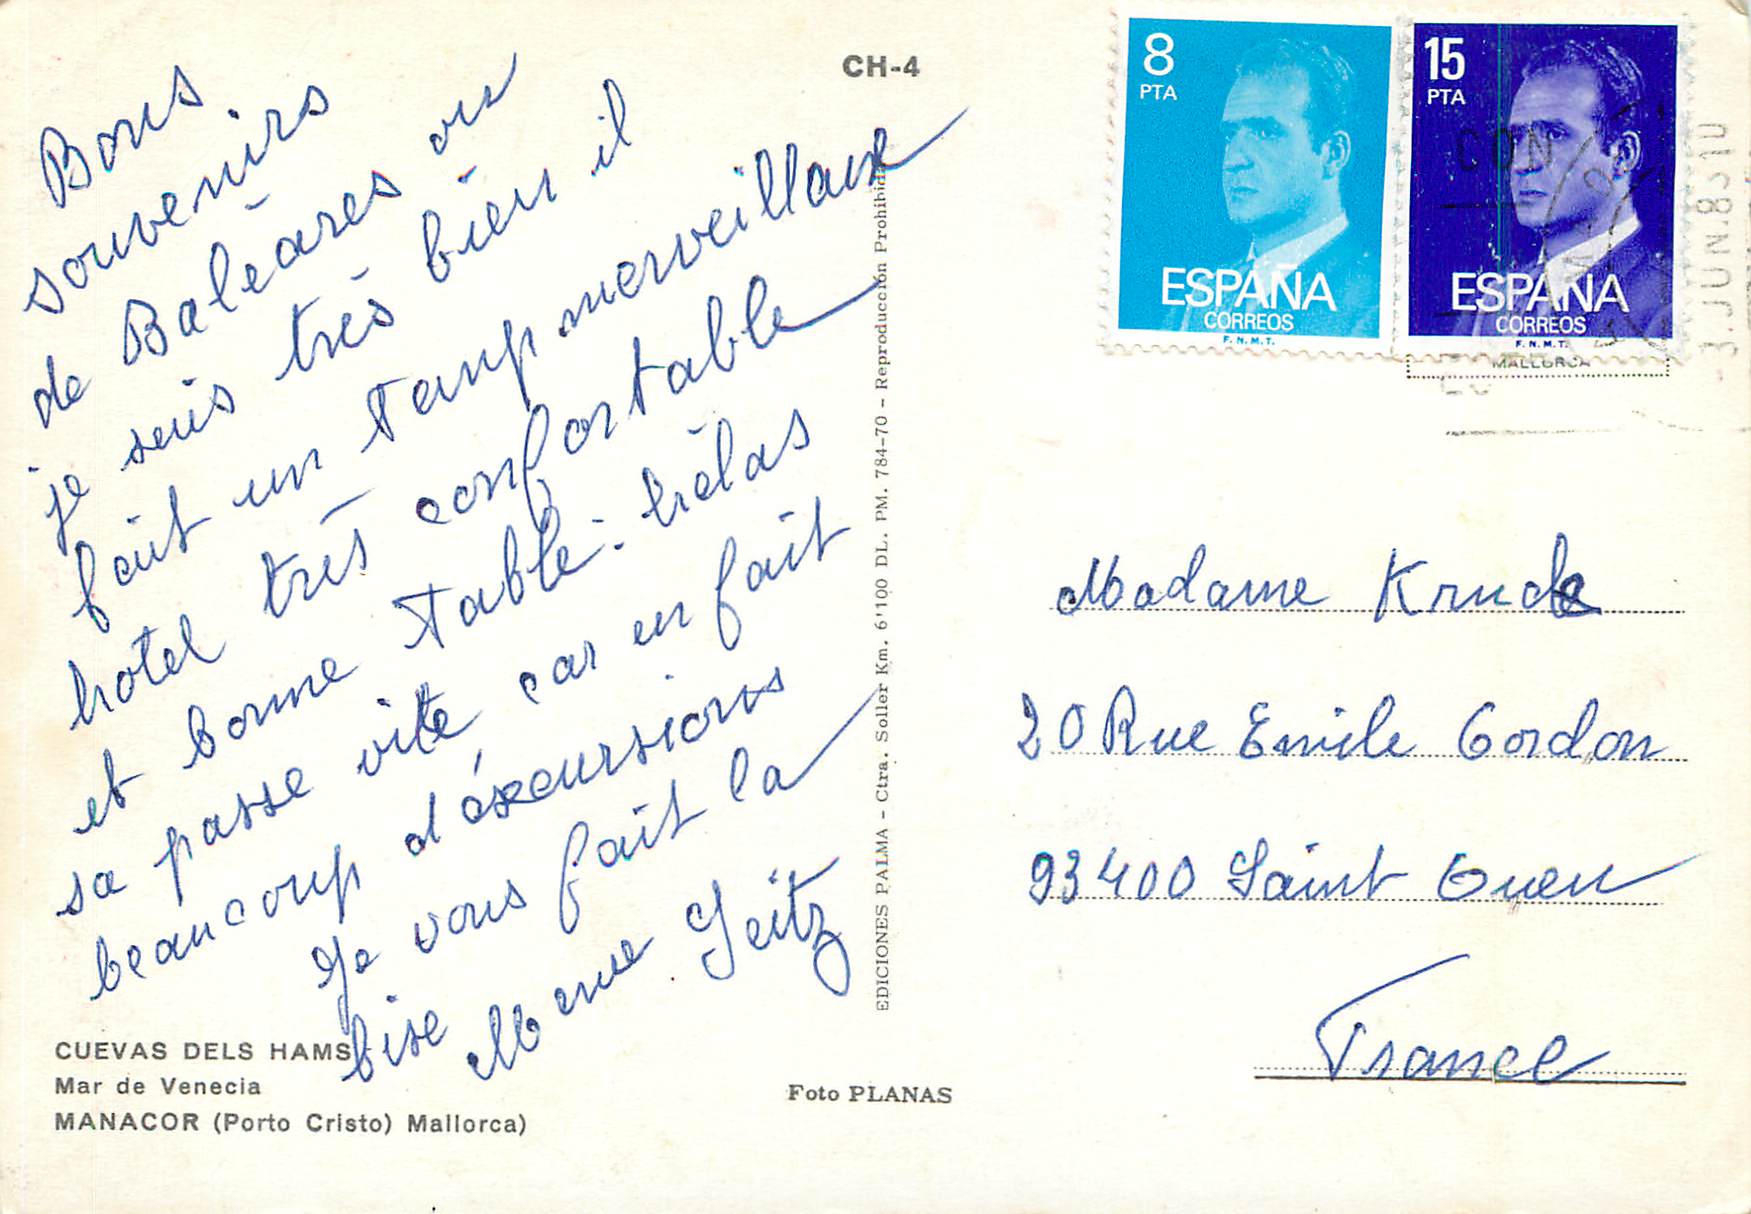 Bons
souvenirs
de Baléares ou
je suis très bien il
fait un temp merveillaux
hotel très confortable
et bonne table. hélas
sa passe vite car en fait
beaucoup d'éxcursions
Je vous fait la
bise Mme Seitz
CUEVAS DELS HAMS
Mar de Venecia
MANACOR (Porto Cristo) Mallorca)
CH-4
EDICIONES PALMA - Ctra. Soller Km. 6'100 DL. PM. 784-70 - Reproducción Prohibida
Foto PLANAS
8
PTA
ESPAÑA
CORREOS
F.N.M.T.
15
PTA
ESPAÑA
CORREOS
F.N.M.T.
MALLORCA
CON
-3.JUN.8310
Madame
20 Rue Emile Cordon
93400 Saint Ouen
France